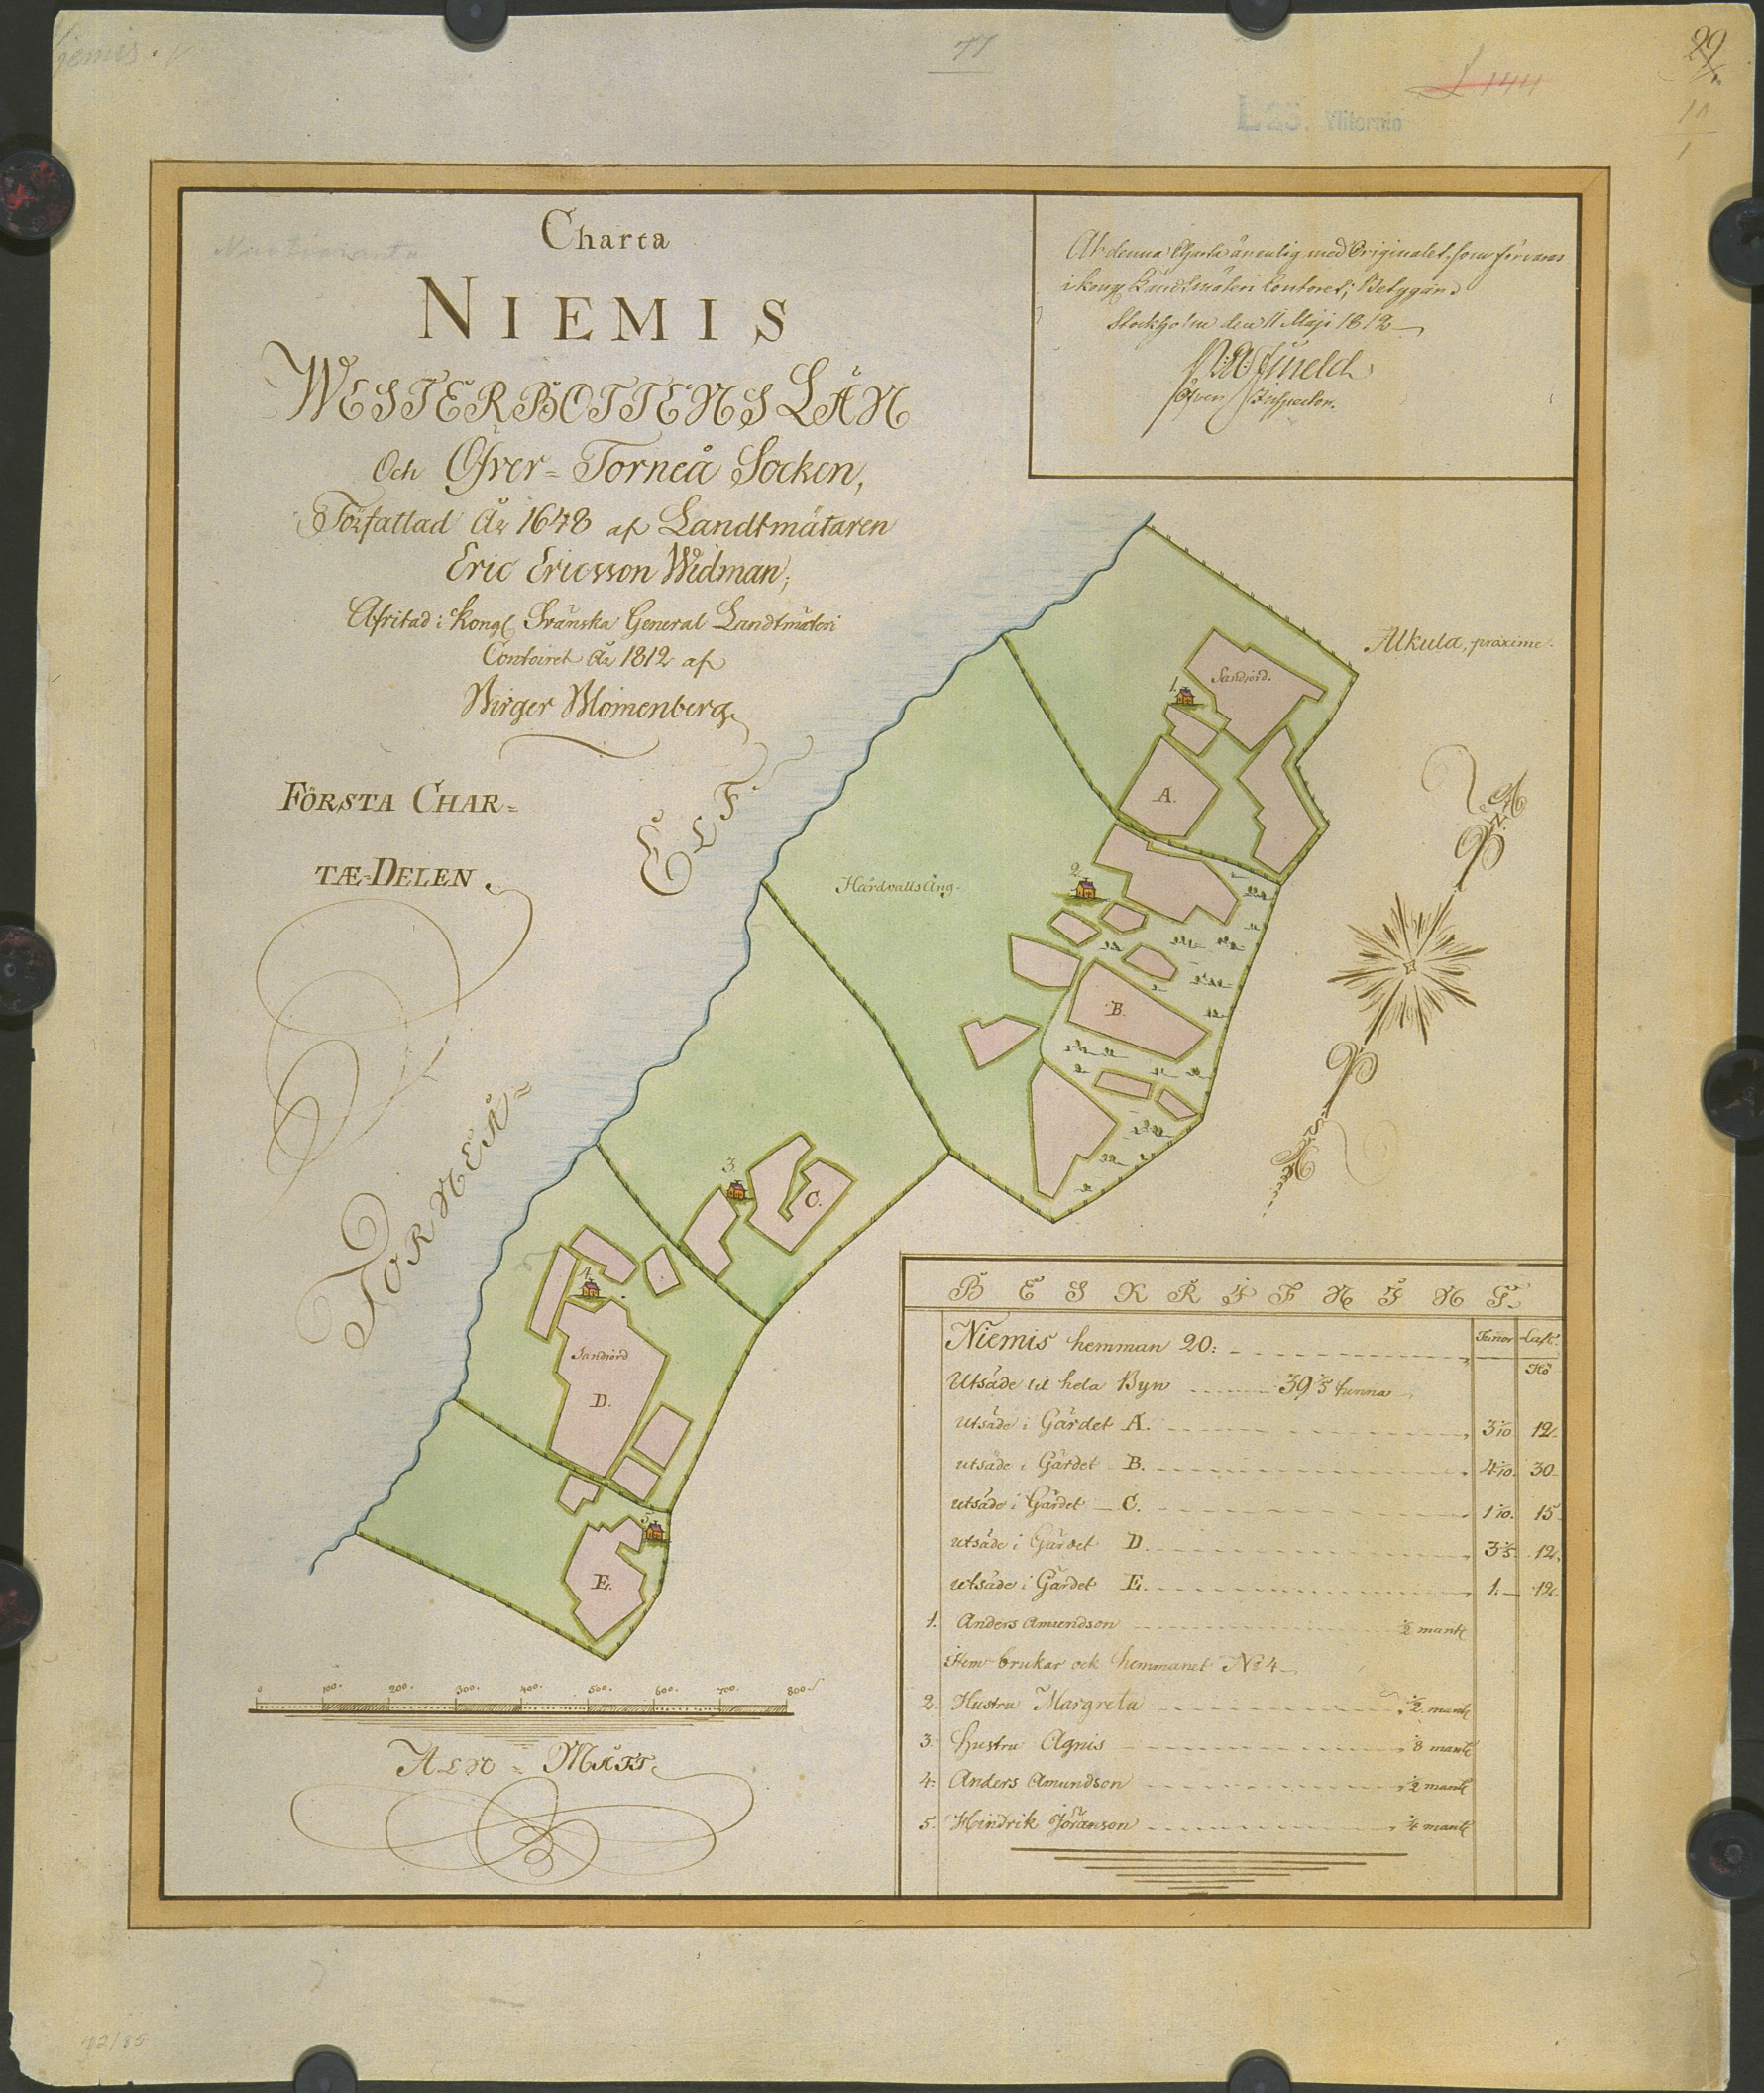 77
29
L 144
L 25. Ylitornio
10
1
Charta
NIEMIS
WESTERBOTTENS LÄN
Och Öfver-Torneå Socken,
Författad År 1648 af Landtmätaren
Eric Ericsson Widman,
Afritad i Kongl Svänska General Landtmäteri
Contoiret År 1812 af
Birger Blomenberg
FÖRSTA CHAR=
TÆ=DELEN.
At denna Charta är enlig med Originalet, som förvaras
i Kongl Landtmäteri Contoret; Betygar.
Stockholm den 11 Maji 1812
Öfver Inspector.
Alkula, proxime.
Sandjord.
1.
A.
2.
Hårdvalls Äng.
B.
3.
C.
4.
Sandjord
D.
5.
E.
TORNEÅ=
ELF.
BESKRIFNING.
Niemis hemman 20: Tunor Lass.
Hö
Utsäde til hela Byn 39 1/5 tunna
utsäde i Gärdet A. 3 1/10 12.
utsäde i Gärdet B. 4 1/10. 30
utsäde i Gärdet C. 1 1/10. 15
utsäde i Gärdet D. 3 1/5. 12.
utsäde i Gärdet E. 1. 12.
1. Anders Amundson 1/2 mantl
Item brukar ock hemmanet No 4
2. Hustru Margreta 1/2 mantl
3. Hustru Agnis mantl
4. Anders Amundson 1/2 mantl
5. Hindrik Jöranson 1/4 mantl
0 100. 200. 300. 400. 500. 600. 700. 800.
ALN=MÅTT.
42/85